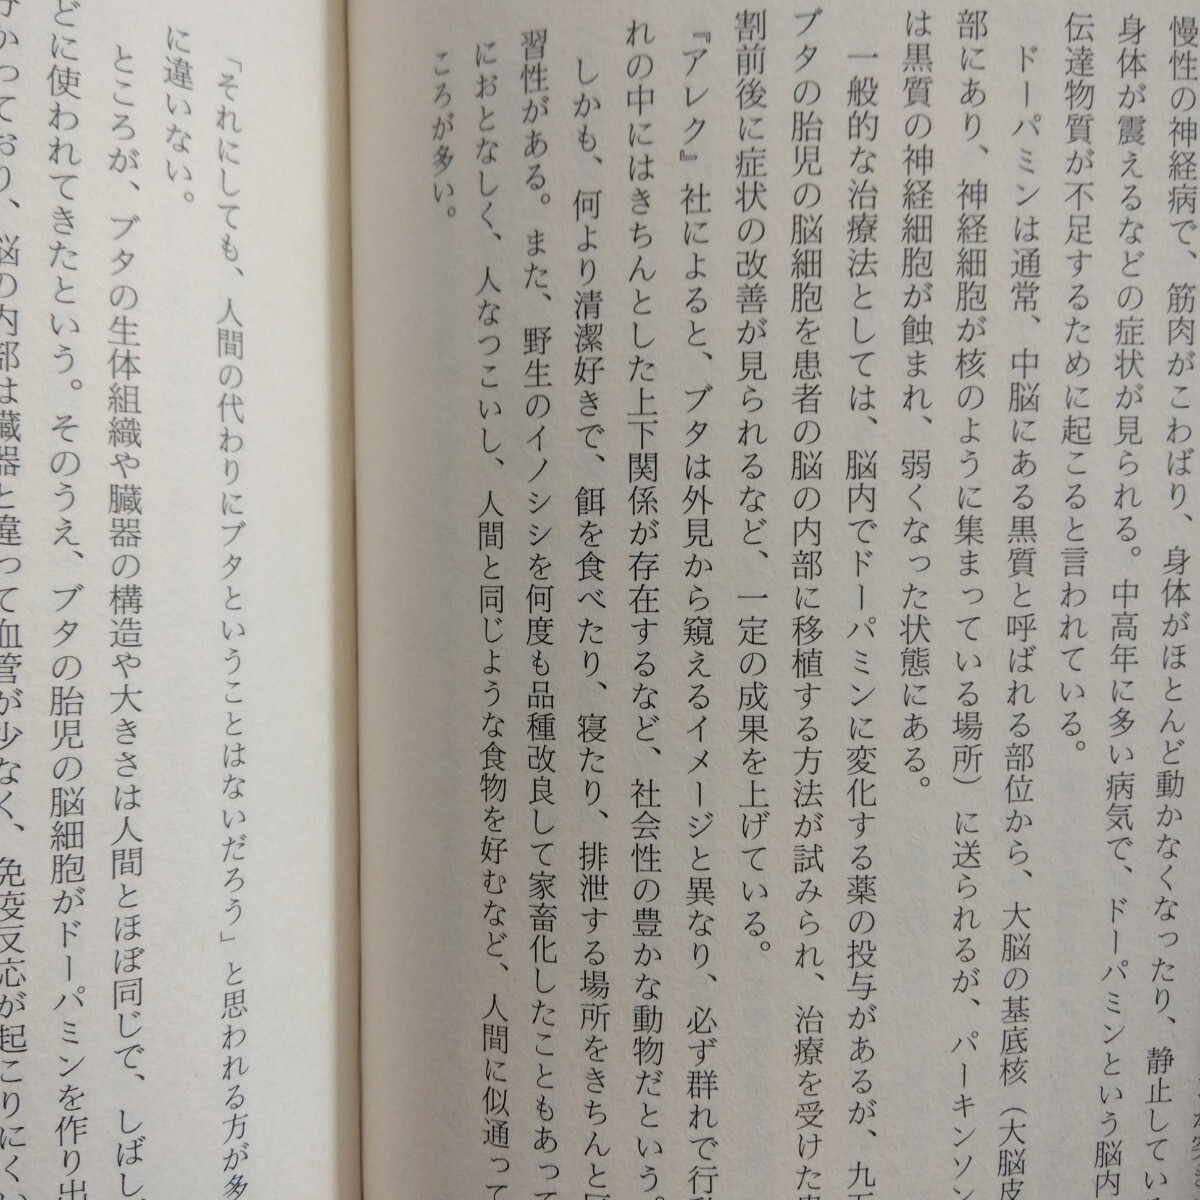 慢性の神経病で、筋肉がこわばり、身体がほとんど動かなくなったり、静止してい
身体が震えるなどの症状が見られる。中高年に多い病気で、ドーパミンという脳内
伝達物質が不足するために起こると言われている。
ドーパミンは通常、中脳にある黒質と呼ばれる部位から、大脳の基底核（大脳皮
部にあり、神経細胞が核のように集まっている場所）に送られるが、パーキンソン
は黒質の神経細胞が蝕まれ、弱くなった状態にある。
一般的な治療法としては、脳内でドーパミンに変化する薬の投与があるが、九五
ブタの胎児の脳細胞を患者の脳の内部に移植する方法が試みられ、治療を受けた患
割前後に症状の改善が見られるなど、一定の成果を上げている。
『アレク』社によると、ブタは外見から窺えるイメージと異なり、必ず群れで行動
れの中にはきちんとした上下関係が存在するなど、社会性の豊かな動物だという。
しかも、何より清潔好きで、餌を食べたり、寝たり、排泄する場所をきちんと
習性がある。また、野生のイノシシを何度も品種改良して家畜化したこともあって
におとなしく、人なつこいし、人間と同じような食物を好むなど、人間に似通って
ころが多い。
「それにしても、人間の代わりにブタということはないだろう」と思われる方が多
に違いない。
ところが、ブタの生体組織や臓器の構造や大きさは人間とほぼ同じで、しばし
どに使われてきたという。そのうえ、ブタの胎児の脳細胞がドーパミンを作り出
かっており、脳の内部は臓器と違って血管が少なく、免疫反応が起こりにくい